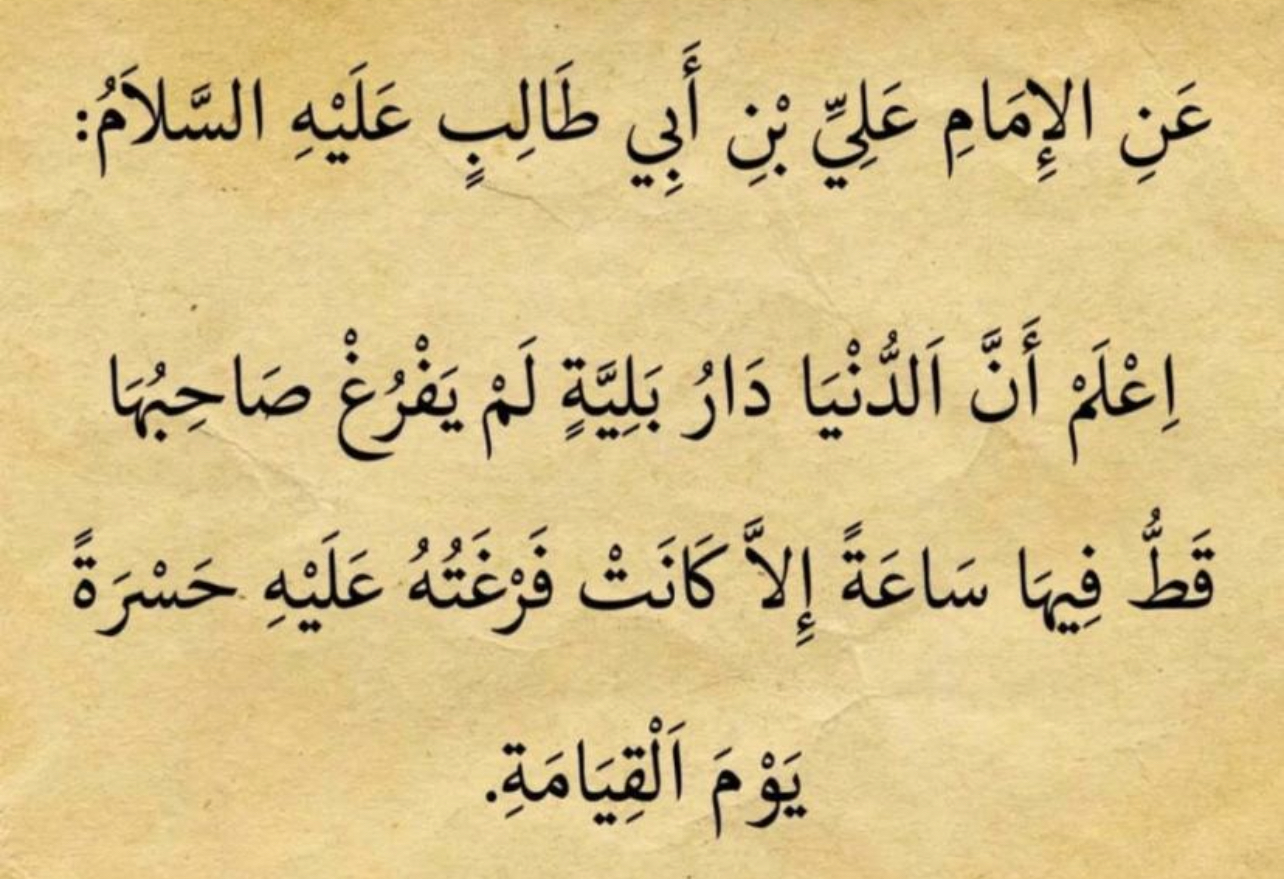 عَنِ الإِمَامِ عَلِيِّ بْنِ أَبِي طَالِبٍ عَلَيْهِ السَّلاَمُ:
اِعْلَمْ أَنَّ اَلدُّنْيَا دَارُ بَلِيَّةٍ لَمْ يَفْرُغْ صَاحِبُهَا
قَطُّ فِيهَا سَاعَةً إِلاَّ كَانَتْ فَرْغَتُهُ عَلَيْهِ حَسْرَةً
يَوْمَ اَلْقِيَامَةِ.